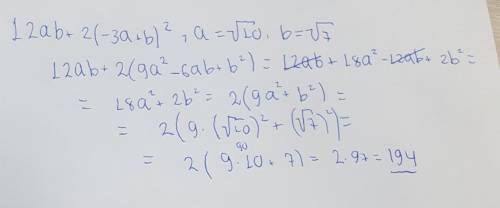 12ab+2(-3a+b)², a=√10, b=√7
12ab+2(9a²-6ab+b²)= 12ab+18a²-12ab+2b²=
= 18a²+2b²= 2(9a²+b²)=
= 2(9·(√10)²+(√7)²)=
90
= 2(9·10+7)= 2·97= 194